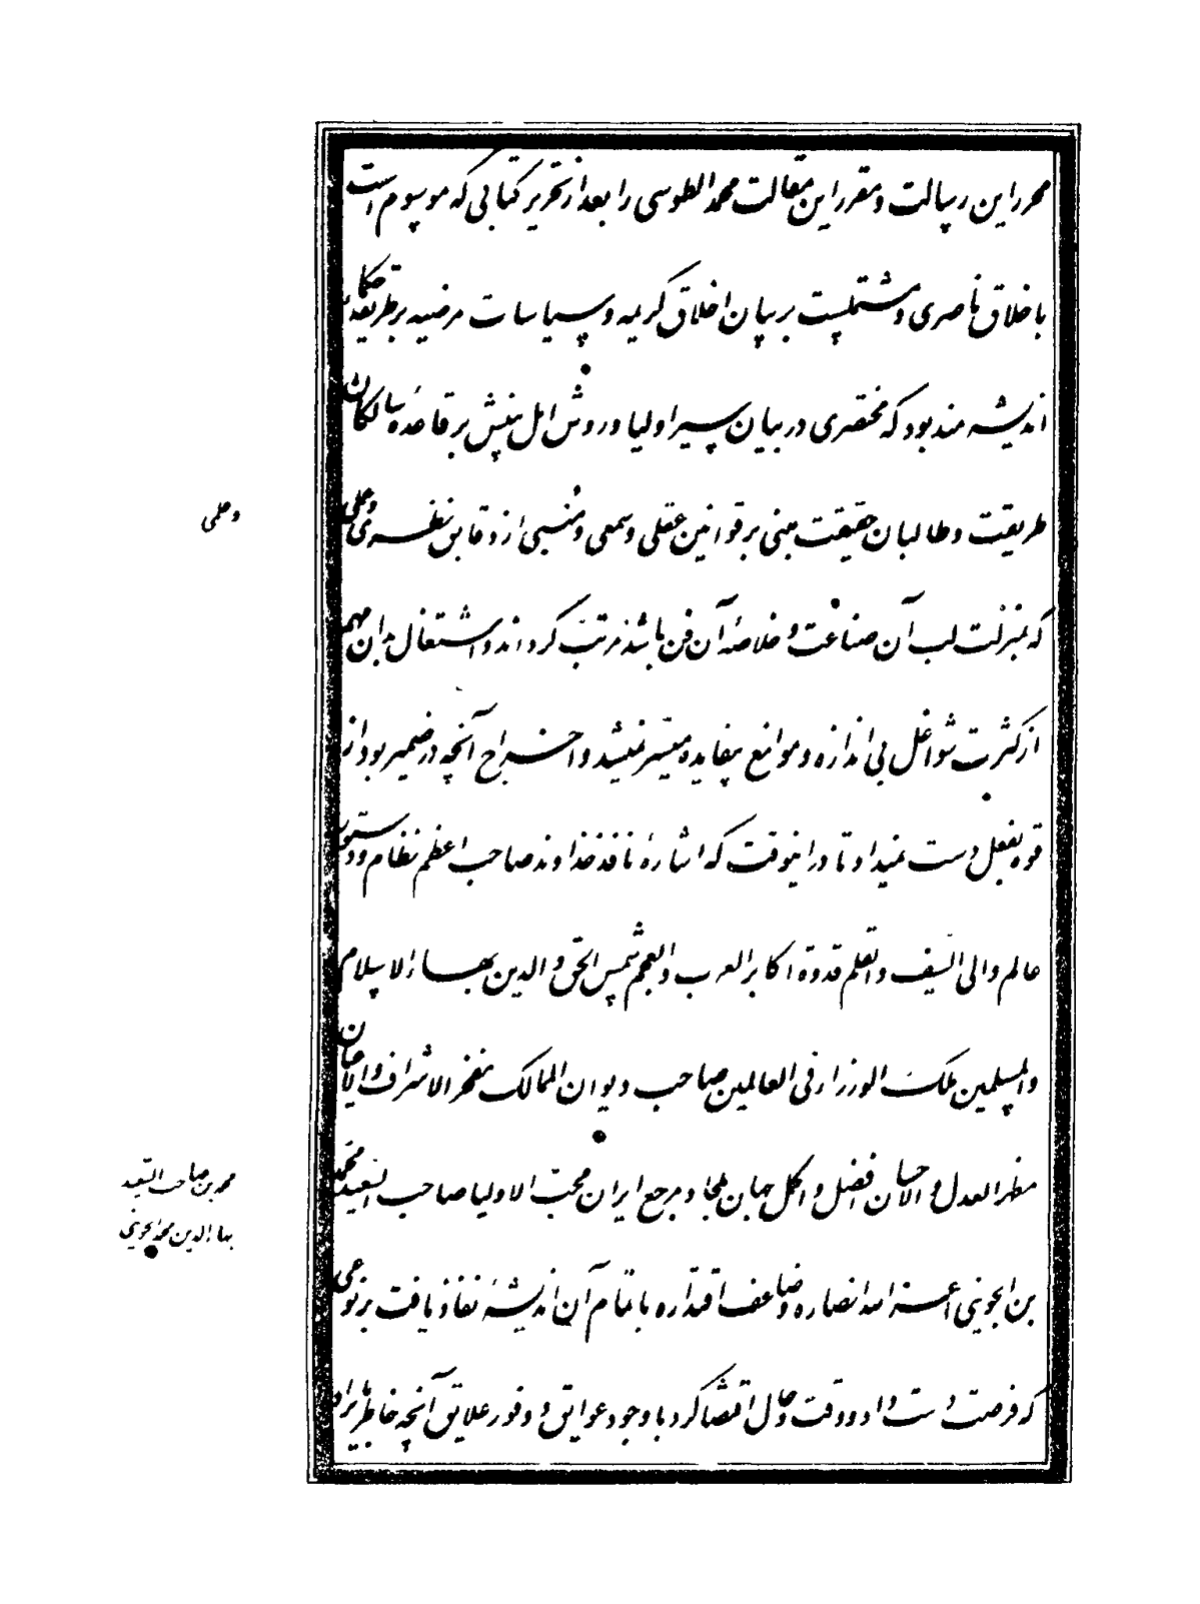 محرر این رسالت و مقرر این مقالت محمد الطوسی را بعد از تحریر کتابی که موسوم است
باخلاق ناصری و مشتملست بر بیان اخلاق کریمه و سیاسات مرضیه بر طریقهٔ حکما
اندیشه مند بود که مختصری در بیان سیر اولیا و روش اهل بینش بر قاعدهٔ سالکان
طریقت و طالبان حقیقت مبنی بر قوانین عقلی و سمعی و منبی از دقایق نظری و عملی
که بمنزلت لب آن صناعت و خلاصهٔ آن فن باشد مرتب کرداند و اشتغال بدان مهم
از کثرت شواغل بی اندازه و موانع بیفایده میسر نمیشد و اخراج آنچه در ضمیر بود از
قوه بفعل دست نمیداد تا در اینوقت که اشارهٔ نافذ خداوند صاحب اعظم نظام و دستور
عالم والی السیف و القلم قدوة اکابر العرب و العجم شمس الحق و الدین بهاء الاسلام
و المسلمین ملک الوزراء فی العالمین صاحب دیوان الممالک مفخر الاشراف و الاعیان
مظهر العدل و الاحسان افضل و اکمل جهان ملجاء و مرجع ایران محب الاولیا صاحب السعید محمد
بن الجوینی اعز الله انصاره و ضاعف اقتداره باتمام آن اندیشهٔ نفاذ یافت بر نوعی
که فرصت دست داد و وقت و حال اقتضا کرد با وجود عوایق و وفور علایق آنچه خاطر براد
و عملی
محمد بن صاحب السعید
بهاء الدین محمد الجوینی